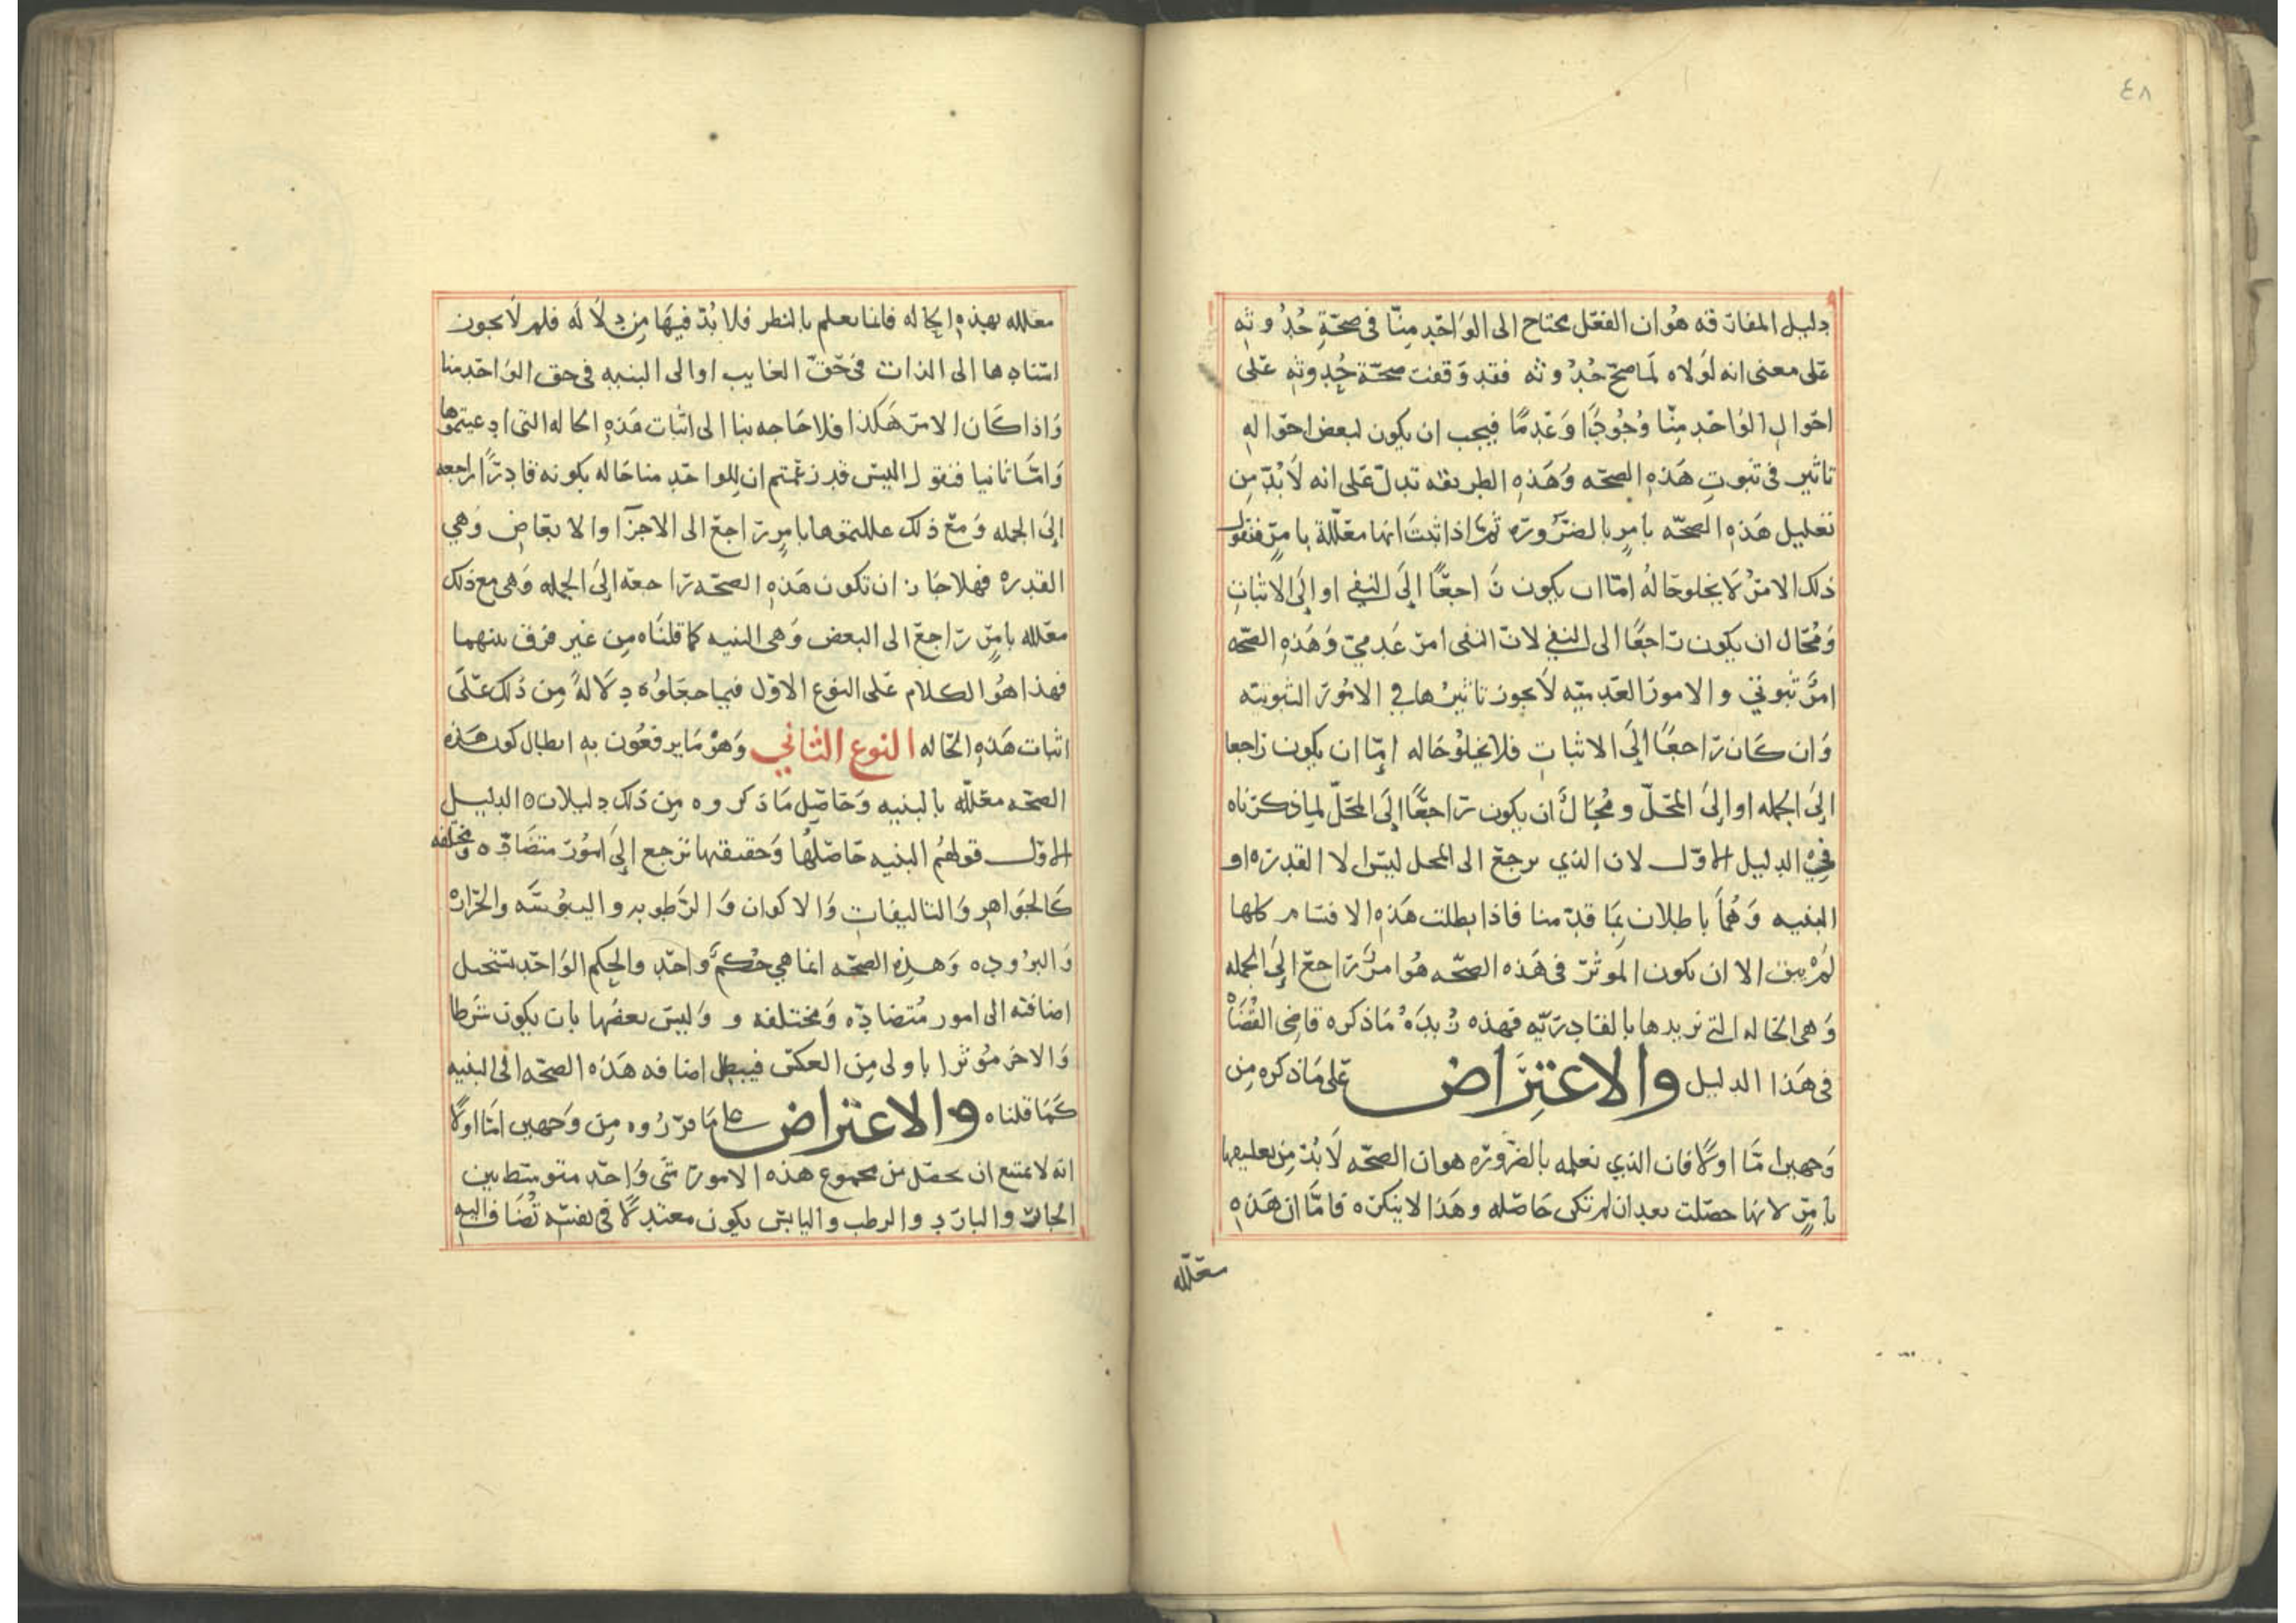 ٤٨
دليل المفارقه هو ان الفعل يحتاج الى الواحد منا في صحة حدوثه
على معنى انه لولاه لما صح حدوثه فقد وقفت صحة حدوثه على
احوال الواحد منا وجودًا وعدمًا فيجب ان يكون لبعض احواله
تاثير في ثبوت هذه الصحه وهذه الطريقه تدل على انه لا بد من
تعليل هذه الصحه بامر بالضروره ثم اذا ثبت انها معللة بامر فنقول
ذلك الامر لا يخلو حاله اما ان يكون راجعًا إلى النفي او إلى الاثبات
ومحال ان يكون راجعًا الى النفي لان النفى امر عدمي وهذه الصحه
امر ثبوتي والامور العدميه لا يجوز تاثيرها في الامور الثبوتيه
وان كان راجعًا إلى الاثبات فلا يخلو حاله إما ان يكون راجعا
إلى الجمله او إلى المحل ومحال أن يكون راجعًا إلى المحل لما ذكرناه
في الدليل الاول لان الذي يرجع الى المحل ليس الا القدره او
البنيه وهما باطلان بما قدمنا فاذا بطلت هذه الاقسام كلها
لم يبق الا ان يكون الموثر في هذه الصحه هو امر راجع إلى الجمله
وهى الحاله التي نريدها بالقادريه فهذه زبدة ما ذكره قاضى القضاه
في هذا الدليل والاعتراض على ما ذكره من
وجهين اما اولا فان الذي نعلمه بالضروره هو ان الصحه لا بد من تعليلها
بامر لانها حصلت بعد ان لم تكن حاصله وهذا لا ينكره فاما ان هذه
معلله
معلله بهذه الحاله فانما يعلم بالنظر فلا بد فيها من دلاله فلم لا يجوز
اسنادها الى الذات في حق الغايب او الى البنيه في حق الواحد منا
واذا كان الامر هكذا فلا حاجه بنا الى اثبات هذه الحاله التى ادعيتموها
واما ثانيا فنقول اليس قد زعمتم ان للواحد منا حاله بكونه قادرًا راجعه
إلى الجمله ومع ذلك عللتموها بامر راجع الى الاجزا والابعاض وهي
القدره فهلا جاز ان تكون هذه الصحه راجعه إلى الجمله وهى مع ذلك
معلله بامر راجع الى البعض وهى البنيه كما قلناه من غير فرق بينهما
فهذا هو الكلام على النوع الاول فيما جعلوه دلالةً من ذلك على
اثبات هذه الحاله النوع الثاني وهو ما يرفعون به ابطال كون هذه
الصحه معلله بالبنيه وحاصل ما ذكروه من ذلك دليلان ه الدليل
الاول قولهم البنيه حاصلها وحقيقتها ترجع إلى امور متضاده ومختلفه
كالجواهر والتاليفات والاكوان والرطوبه واليبوسه والحراره
والبروده وهذه الصحه انما هي حكم واحد والحكم الواحد يستحيل
اضافته الى امور متضاده ومختلفه و وليس بعضها بان يكون شرطا
والاخر موثرا باولى من العكس فيبطل اضافه هذه الصحه الى البنيه
كما قلناه والاعتراض على ما قرروه من وجهين اما اولا
انه لا يمتنع ان يحصل من مجموع هذه الامور شى واحد متوسط بين
الحار والبارد والرطب واليابس يكون معتدلا في نفسه تضاف اليه